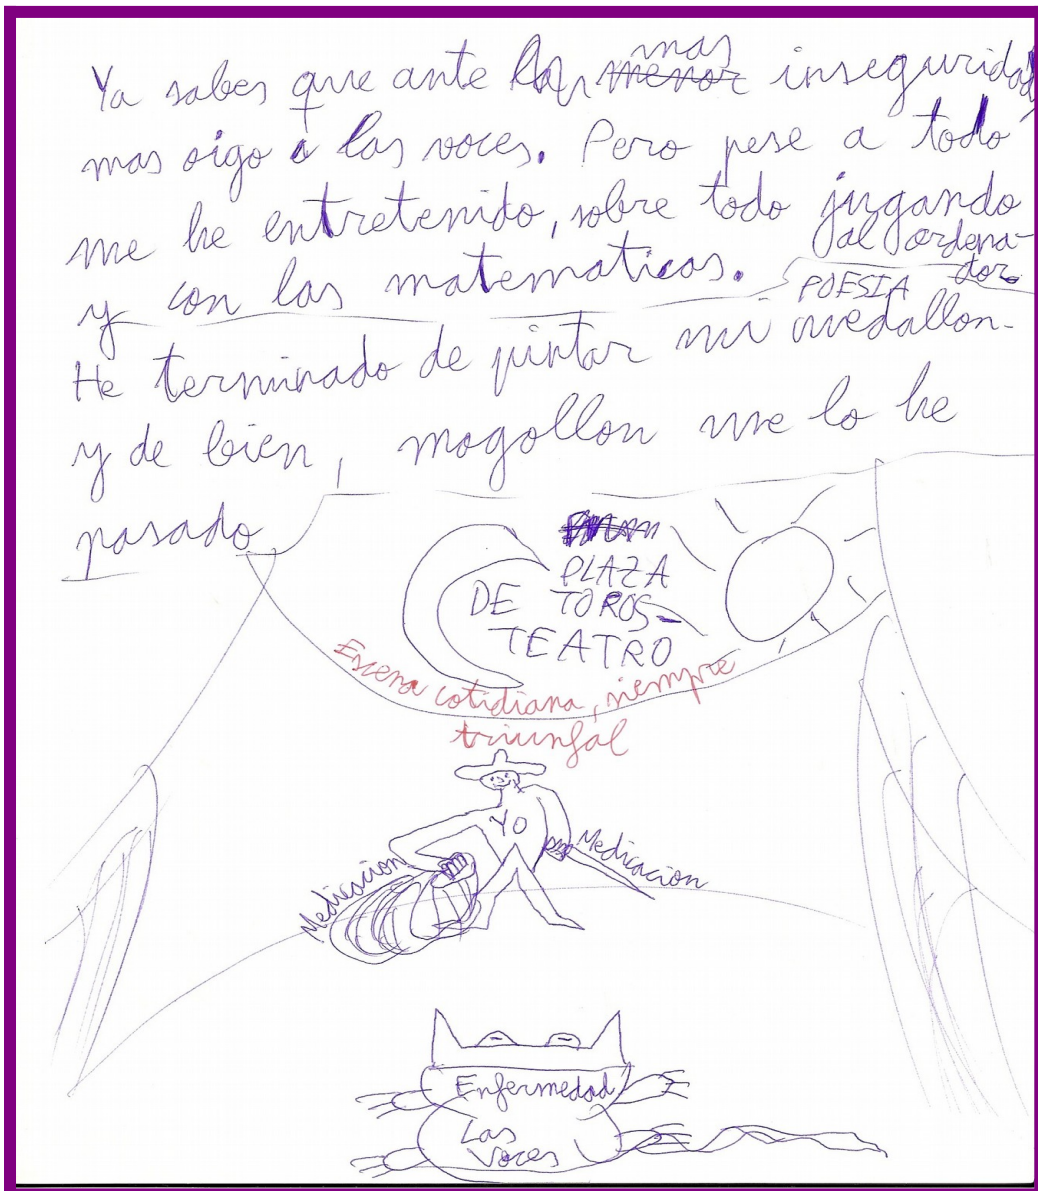 Ya sabes que ante mas inseguridad,
mas oigo a las voces. Pero pese a todo
me he entretenido, sobre todo jugando
al ordena-
dor
y con las matematicas.
POESIA
He terminado de pintar mi medallon-
y de bien, mogollon me lo he
pasado
PLAZA
DE TOROS-
TEATRO
Escena cotidiana, siempre
triunfal
YO
Medicacion
Medicacion
Enfermedad
Las
Voces